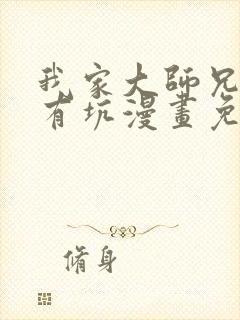 我家大師兄
有坑漫畫免
脩身